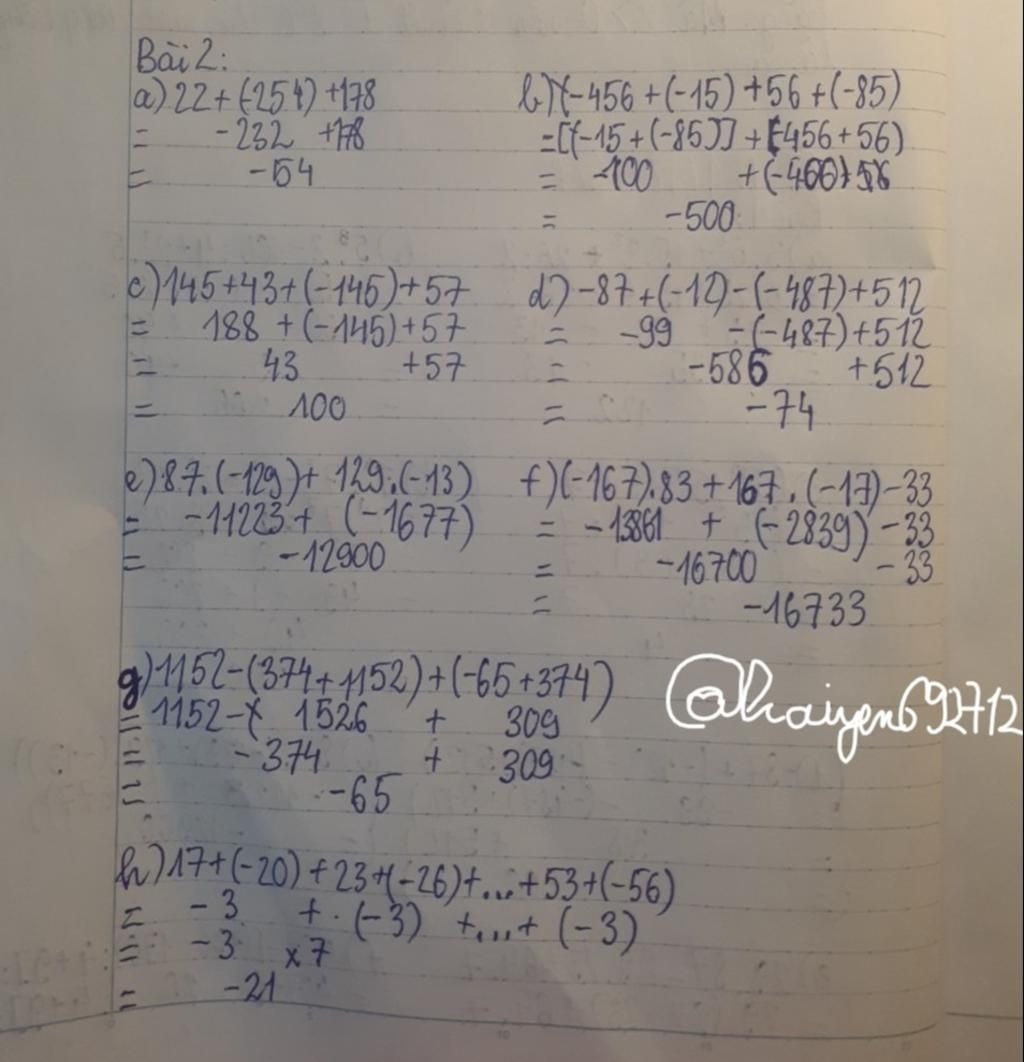 Bài 2:
a) 22 + (-254) + 178
= -232 + 178
= -54
b) (-456 + (-15) + 56 + (-85)
= [(-15 + (-85)] + (-456 + 56)
= -100 +
= -500
c) 145 + 43 + (-145) + 57
= 188 + (-145) + 57
= 43 + 57
= 100
d) -87 + (-12) - (-487) + 512
= -99 - (-487) + 512
= -586 + 512
= -74
e) 87.(-129) + 129.(-13)
= -11223 + (-1677)
= -12900
f) (-167).83 + 167.(-17) - 33
= -13861 + (-2839) - 33
= -16700 - 33
= -16733
g) 1152 - (374 + 1152) + (-65 + 374)
= 1152 - 1526 + 309
= -374 + 309
= -65
@haiyen692712
h) 17 + (-20) + 23 + (-26) + ... + 53 + (-56)
= -3 + (-3) + ... + (-3)
= -3 x 7
= -21